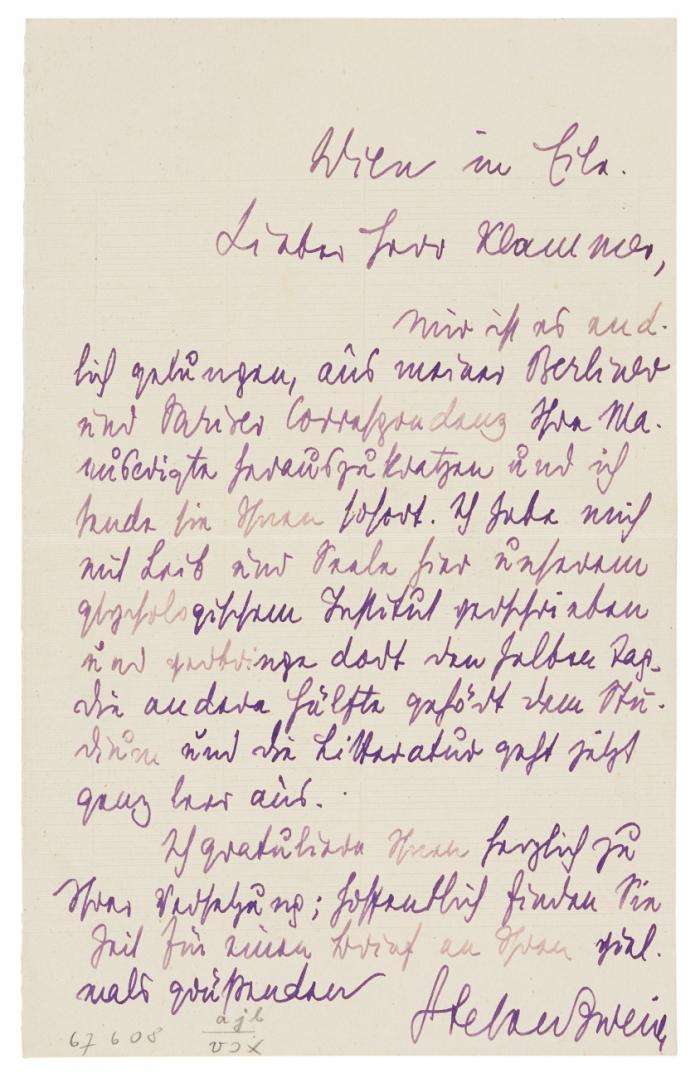 Wien in Eile.
Lieber Herr Klammer,
mir ist es end-
lich gelungen, aus meiner Berliner
und Pariser Correspondenz Ihre Ma-
nuscripte herauszukratzen und ich
sende sie Ihnen sofort. Ich habe mich
mit Leib und Seele hier unserem
psychologischem Institut verschrieben
und verbringe dort den halben Tag.
Die andere Hälfte gehört dem Stu-
dium und die Litteratur geht jetzt
ganz leer aus.
Ich gratuliere Ihnen herzlich zu
Ihrer Versetzung; hoffentlich finden Sie
Zeit für einen Brief an Ihren viel-
mals grüßenden
Stefan Zweig
67 608